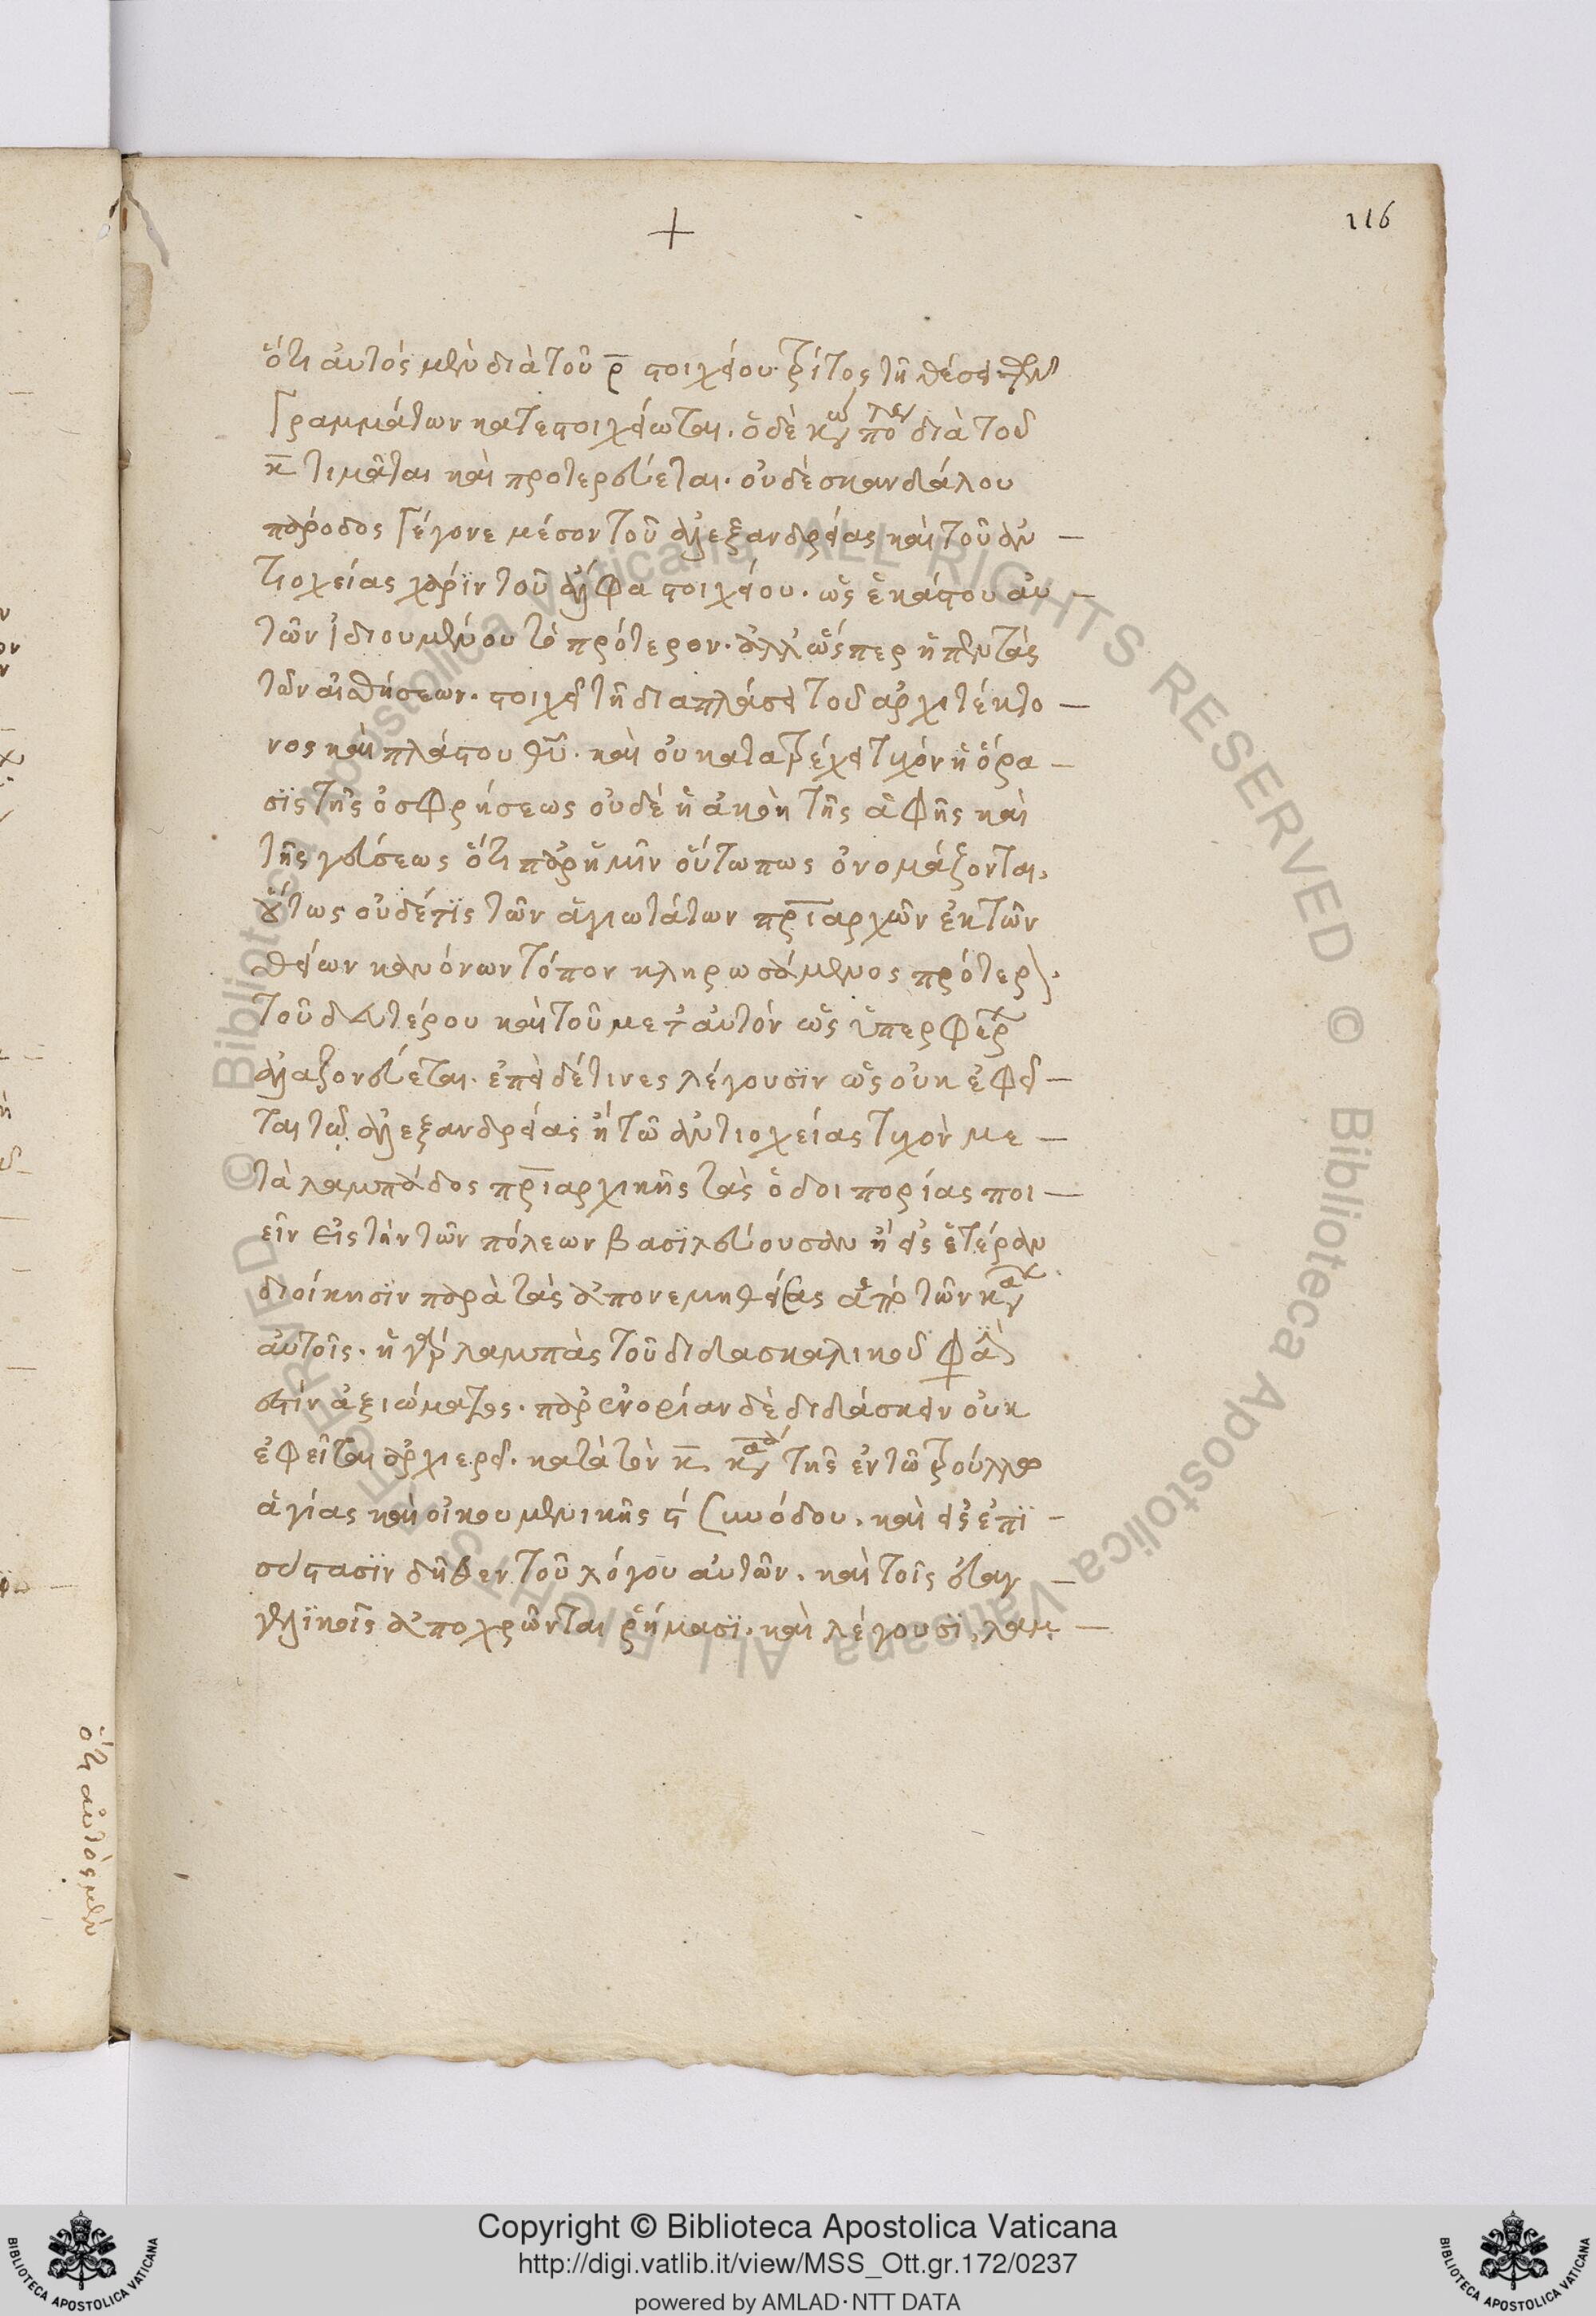 116
ὅτι αὐτὸς μὲν διὰ τοῦ ρ̅ στοιχείου τρίτος τῆ θέσει τῶν
γραμμάτων κατεστοιχείωται. ὁ δὲ κων πο διὰ τοῦ
κ̅ τιμᾶται καὶ προτερεύεται. οὐδὲ σκανδάλου
πάροδος γέγονε μέσον τοῦ ἀλεξανδρείας καὶ τοῦ ἀν
τιοχείας χάριν τοῦ ἄλφα στοιχείου. ὡς ἑκάστου αὐ
τῶν ἰδιουμένου τὸ πρότερον. ἀλλ' ὥσπερ ἡ πεντὰς
τῶν αἰσθήσεων. στοιχεῖ τῆ διαπλάσει τοῦ ἀρχιτέκτο
νος καὶ πλάστου θῦ. καὶ οὐ κατατρέχει τυχὸν ἡ ὅρα
σϊς τῆς ὀσφρήσεως οὐδὲ ἡ ἀκοὴ τῆς ἁφῆς καὶ
τῆς γεύσεως ὅτι παρ' ἡμῖν οὕτω πως ὀνομάζονται,
οὕτως οὐδέ τϊς τῶν ἁγιωτάτων πρ̅ιαρχῶν ἐκ τῶν
θείων κανόνων τόπον κληρωσάμενος πρότερ
τοῦ δευτέρου καὶ τοῦ μετ' αὐτὸν ὡς ὑπερφερ
ἀλαζονεύεται. ἐπεὶ δέ τινες λέγουσϊν ὡς οὐκ ἐφεῖ
ται τῶ ἀλεξανδρείας ἢ τῶ ἀντιοχείας τυχὸν με
τὰ λαμπάδος πρ̅ιαρχικῆς τὰς ὁδοιπορίας ποι
εῖν εἰς τὴν τῶν πόλεων βασϊλεύουσαν ἢ εἰς ἑτέραν
διοίκησϊν παρὰ τὰς ἀπονεμηθείσας ἀπὸ τῶν κα
αὐτοῖς. ἡ γὰρ λαμπὰς τοῦ διδασκαλικοῦ φα
στὶν ἀξιώματος. παρ' ἐνορίαν δὲ διδάσκειν οὐκ
ἐφεῖται ἀρχιερεῖ. κατὰ τὸν κ̅. κα τῆς ἐν τῶ τρούλλω
ἁγίας καὶ οἰκουμενικῆς ϛ' συνόδου. καὶ εἰς ἐπϊ
σύστασϊν δῆθεν τοῦ λόγου αὐτῶν. καὶ τοῖς εὐαγ
γελϊκοῖς ἀποχρῶνται ῥήμασϊ. καὶ λέγουσϊ, λαμ
ὅτι αὐτὸς μὲν
Copyright © Biblioteca Apostolica Vaticana
http://digi.vatlib.it/view/MSS_Ott.gr.172/0237
powered by AMLAD·NTT DATA
BIBLIOTECA APOSTOLICA VATICANA
BIBLIOTECA APOSTOLICA VATICANA
© Biblioteca Apostolica Vaticana ALL RIGHTS RESERVED
© Biblioteca Apostolica Vaticana ALL RIGHTS RESERVED